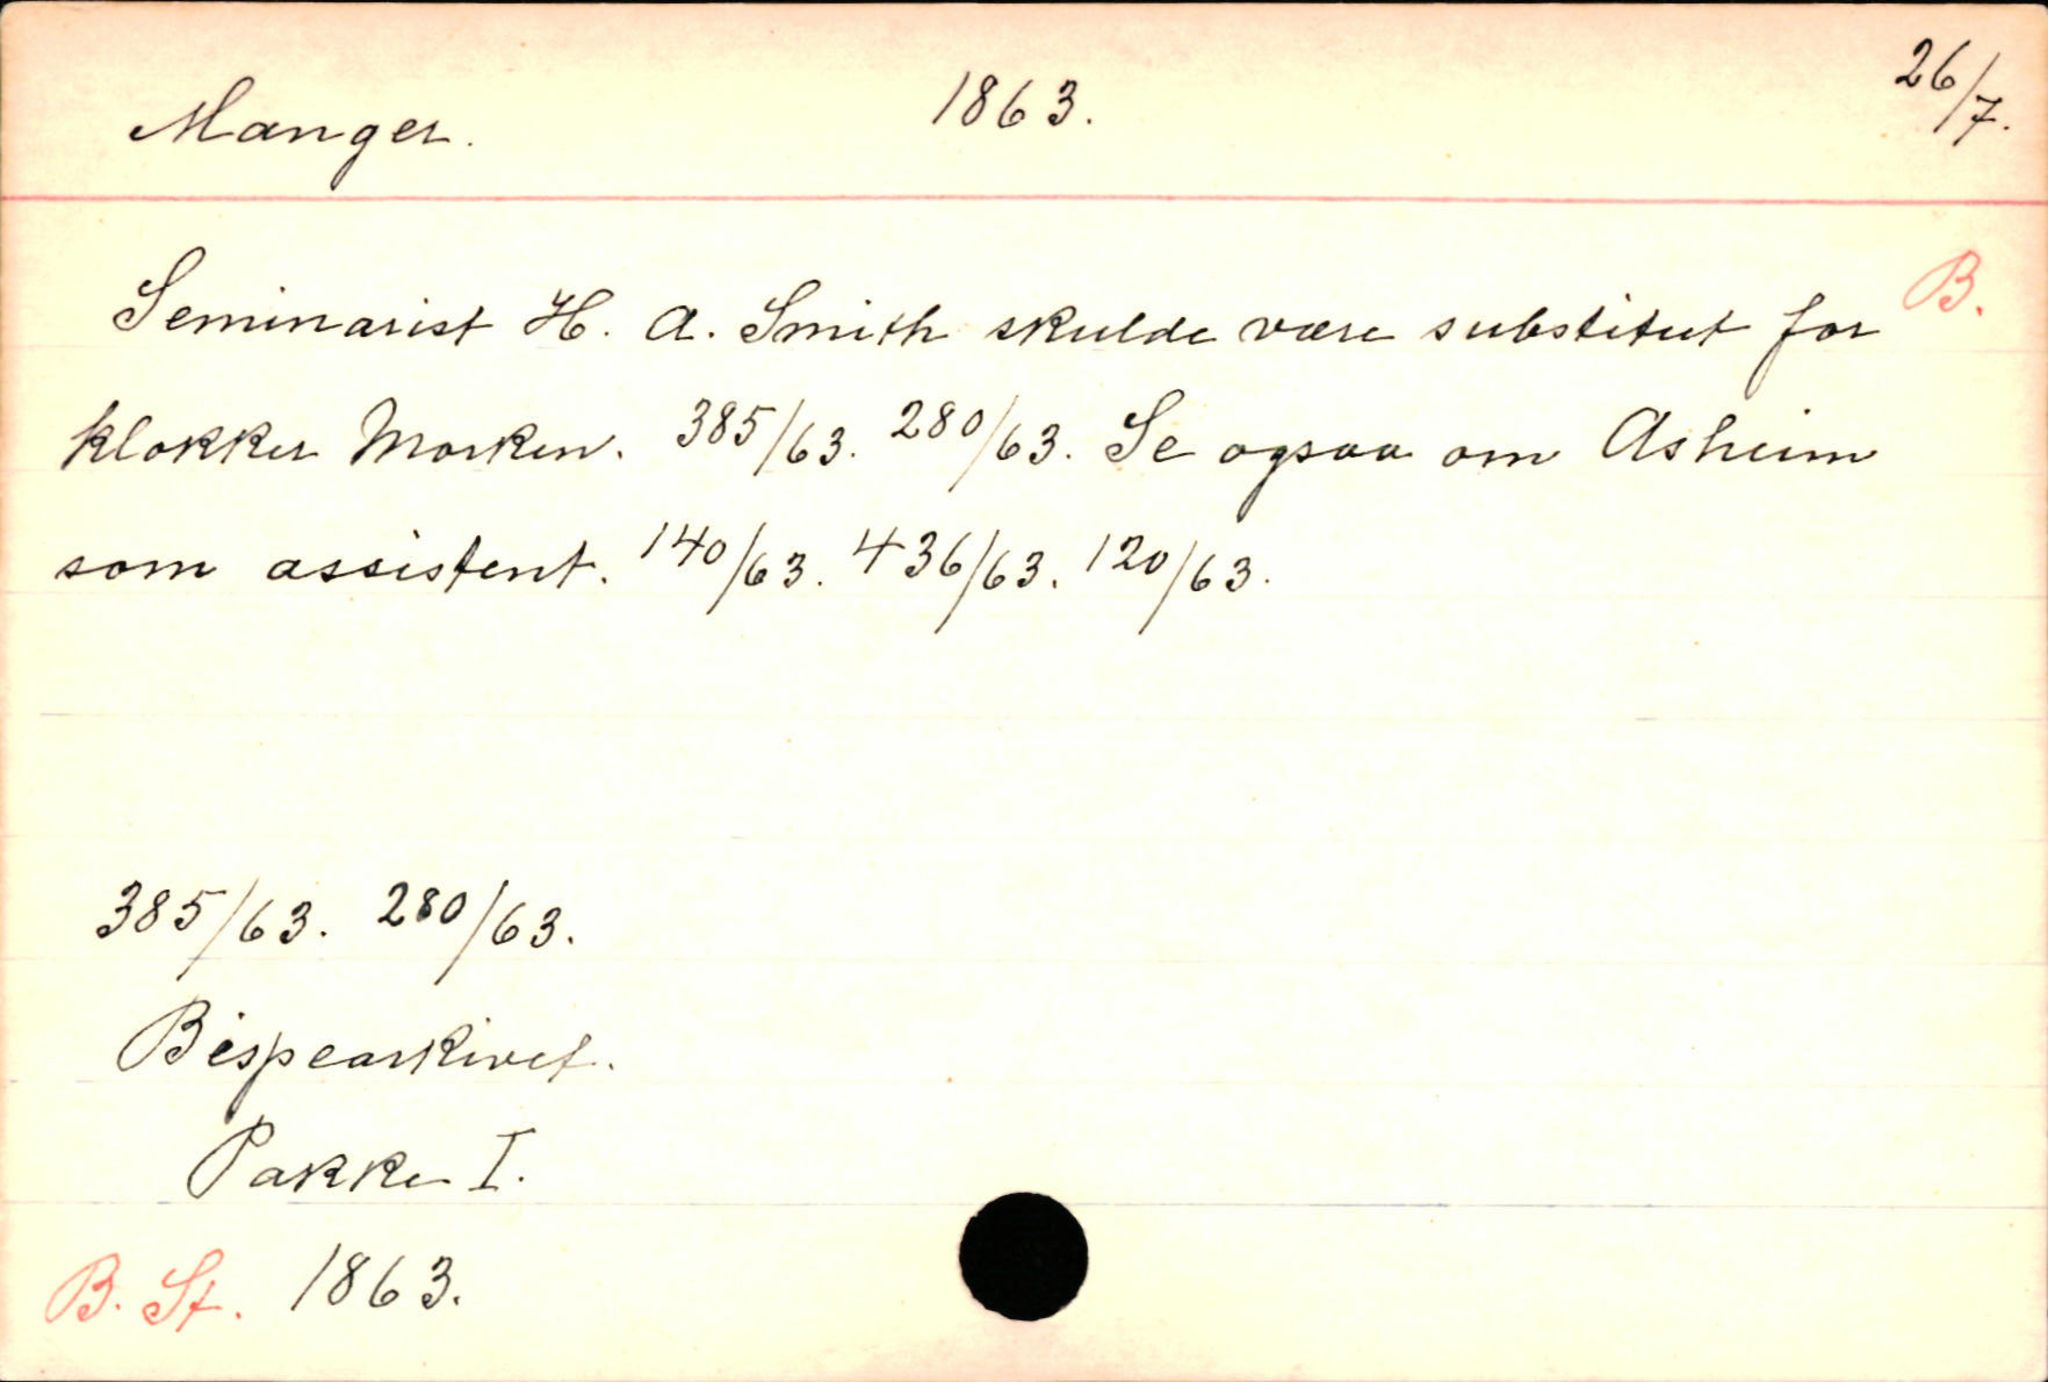 Manger. 1863. 26/7.
B.
Seminarist H. A. Smith skulde være substitut for
klokker Morken. 385/63. 280/63. Se ogsaa om Asheim
som assistent. 140/63. 436/63. 120/63.
385/63. 280/63.
Bispearkivet.
Pakke I.
B. St. 1863.